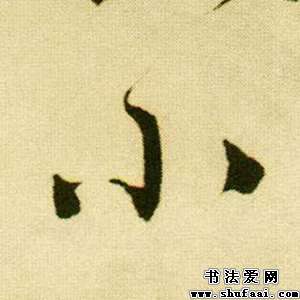 小
书法爱网
www.shufaai.com